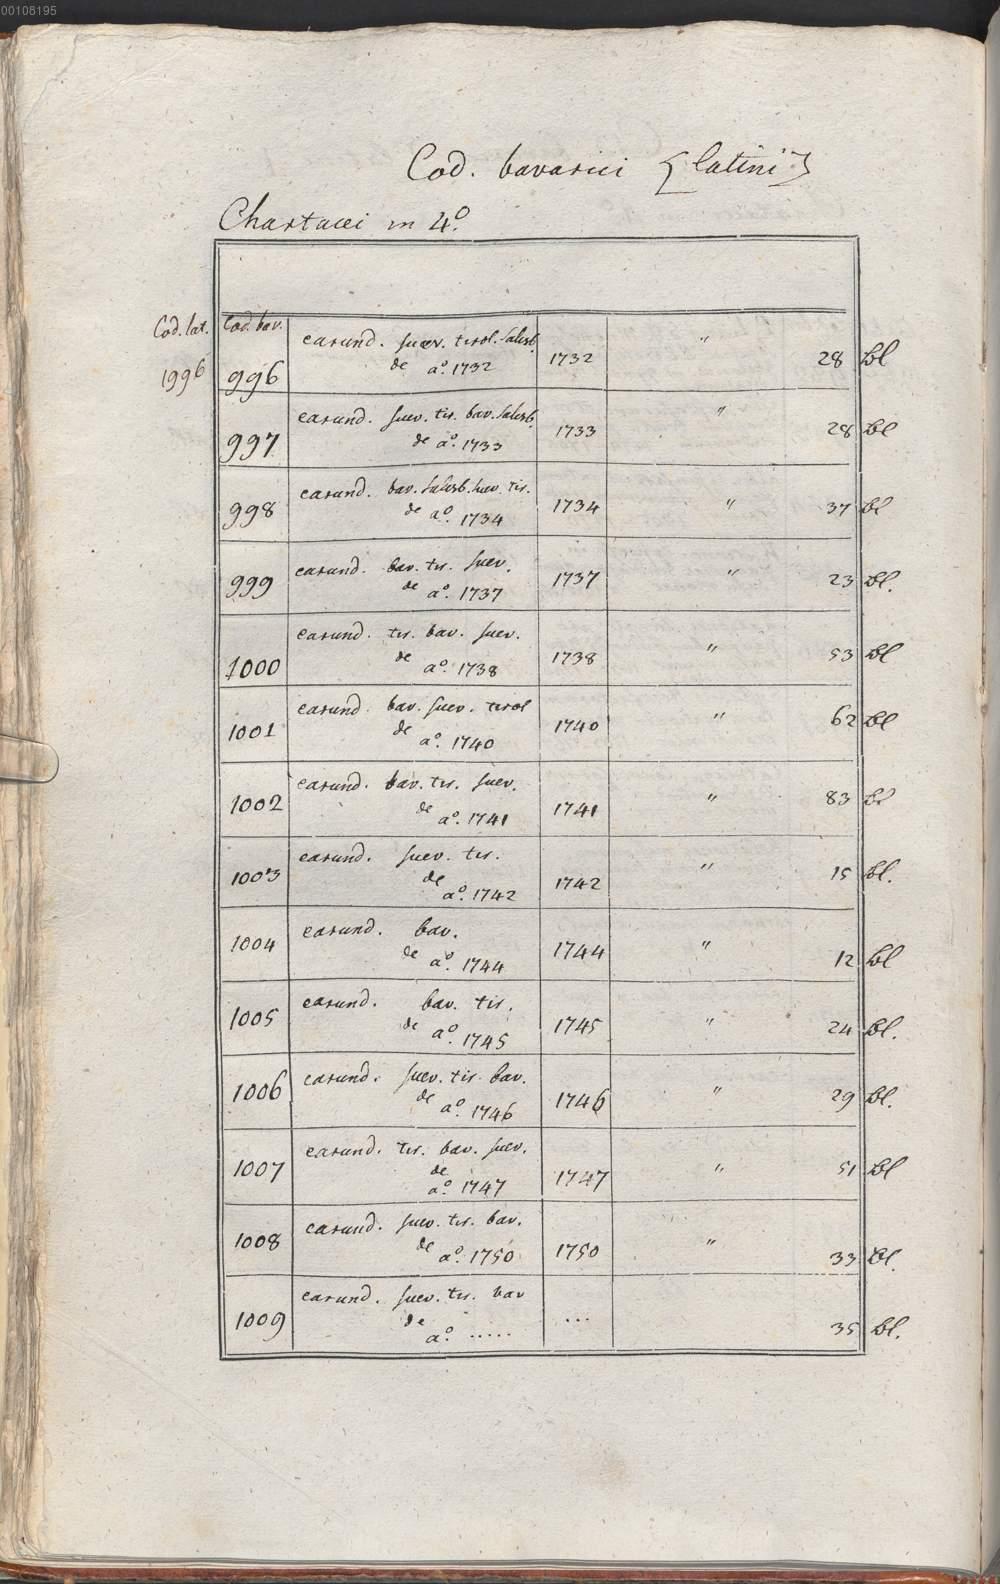 00108195
Cod. bavarici {latini}
Chartacei in 4º.
Cod. lat. Cod. bav.
1996 996 earund. suev. tirol. Salisb. de aº. 1732 1732 " 28 bl
997 earund. suev. tir. bav. Salisb. de aº. 1733 1733 " 28 bl
998 earund. bav. Salisb. suev. tir. de aº. 1734 1734 " 37 bl
999 earund. bav. tir. suev. de aº. 1737 1737 " 23 bl.
1000 earund. tir. bav. suev. de aº. 1738 1738 " 53 bl
1001 earund. bav. suev. tirol de aº. 1740 1740 " 62 bl
1002 earund. bav. tir. suev. de aº. 1741 1741 " 83 bl
1003 earund. suev. tir. de aº. 1742 1742 " 15 bl.
1004 earund. bav. de aº. 1744 1744 " 12 bl
1005 earund. bav. tir. de aº. 1745 1745 " 24 bl.
1006 earund. suev. tir. bav. de aº. 1746 1746 " 29 bl.
1007 earund. tir. bav. suev. de aº. 1747 1747 " 51 bl
1008 earund. suev. tir. bav. de aº. 1750 1750 " 33 bl.
1009 earund. suev. tir. bav de aº. ..... ... 35 bl.